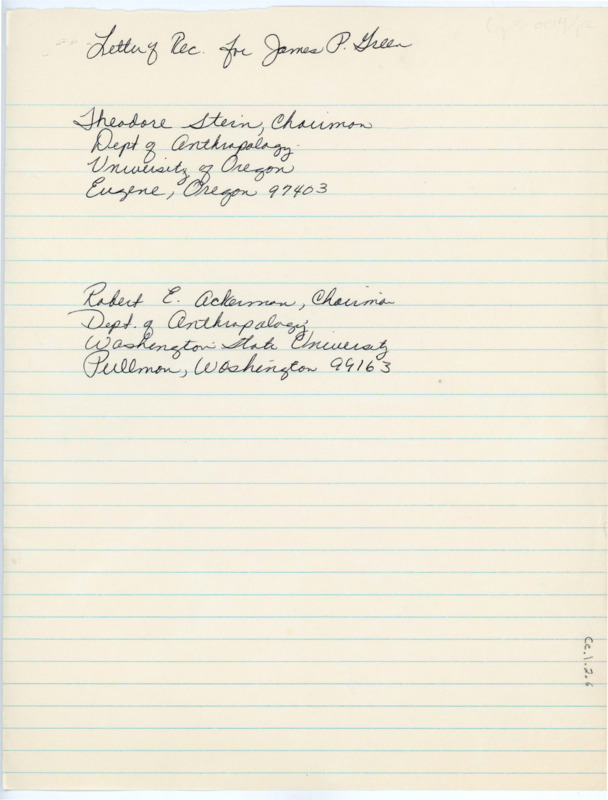 Letter of Rec. for James P. Green
Theodore Stern, Chairman
Dept of Anthropology
University of Oregon
Eugene, Oregon 97403
Robert E. Ackerman, Chairman
Dept. of Anthropology
Washington State University
Pullman, Washington 99163
Cc.1.2.6